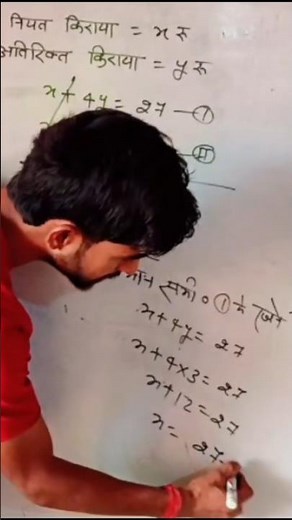 नियत किराया = x रु
अतिरिक्त किराया = y रु
x + 4y = 27 — ①
②
मान समी० ① में रखने
x + 4y = 27
x + 4×3 = 27
x + 12 = 27
x = 27